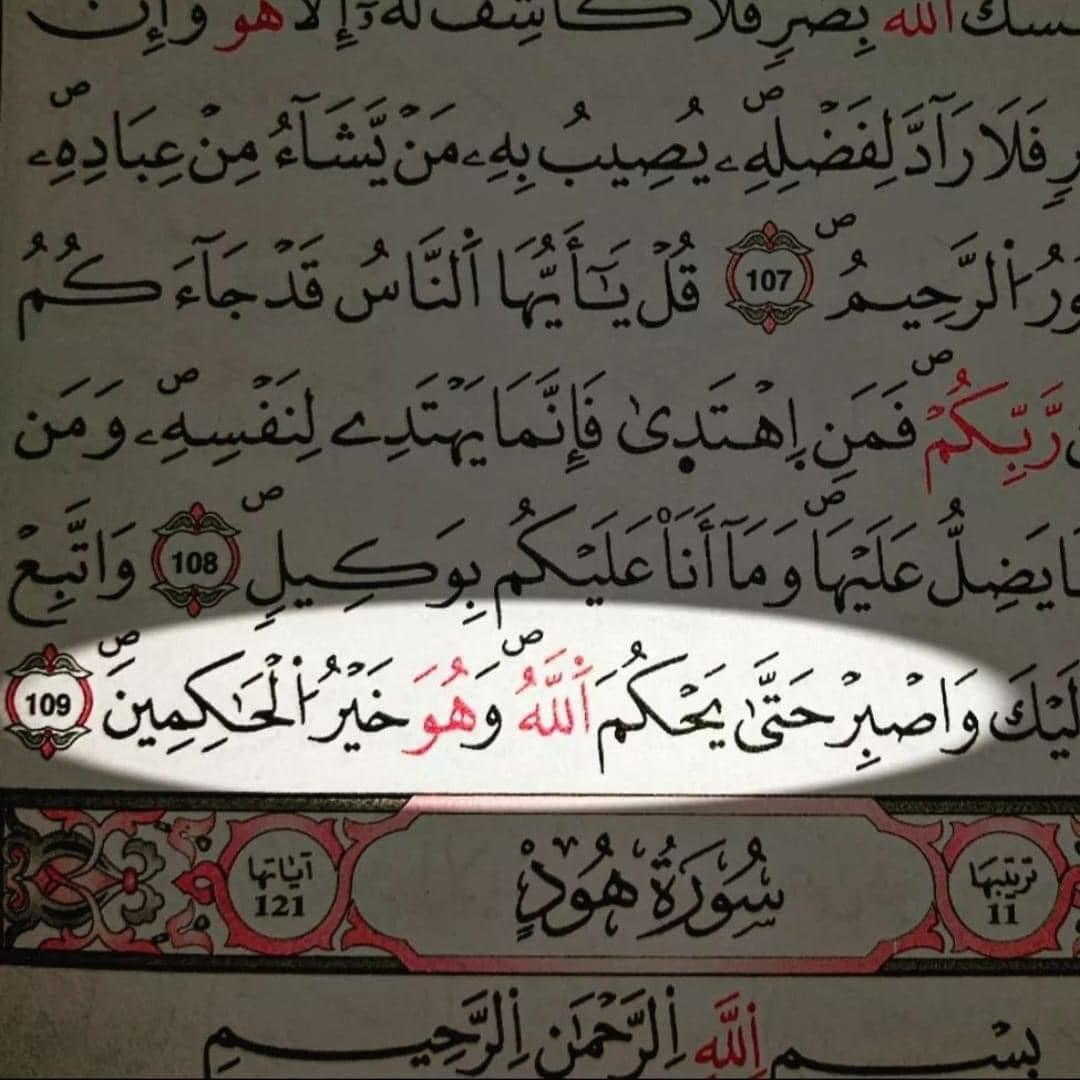 اللَّهُ بِضُرٍّ فَلَا كَاشِفَ لَهُۥٓ إِلَّا هُوَ وَإِنْ
فَلَا رَآدَّ لِفَضْلِهِۦۖ يُصِيبُ بِهِۦ مَنْ يَّشَآءُ مِنْ عِبَادِهِۦۖ
اُ۬لرَّحِيمُۖ 107 قُلْ يَٰٓأَيُّهَا اَ۬لنَّاسُ قَدْ جَآءَكُمُ
رَّبِّكُمْۖ فَمَنِ اِ۪هْتَد۪ىٰ فَإِنَّمَا يَهْتَدِے لِنَفْسِهِۦۖ وَمَن
يَضِلُّ عَلَيْهَاۖ وَمَآ أَنَا۠ عَلَيْكُم بِوَكِيلٍۖ 108 وَاتَّبِعْ
وَاصْبِرْ حَتَّىٰ يَحْكُمَ اَ۬للَّهُۖ وَهُوَ خَيْرُ اُ۬لْحَٰكِمِينَۖ 109
ترتيبها 11 سُورَةُ هُودٍ آياتها 121
بِسْمِ اِ۬للَّهِ اِ۬لرَّحْمَٰنِ اِ۬لرَّحِيمِ